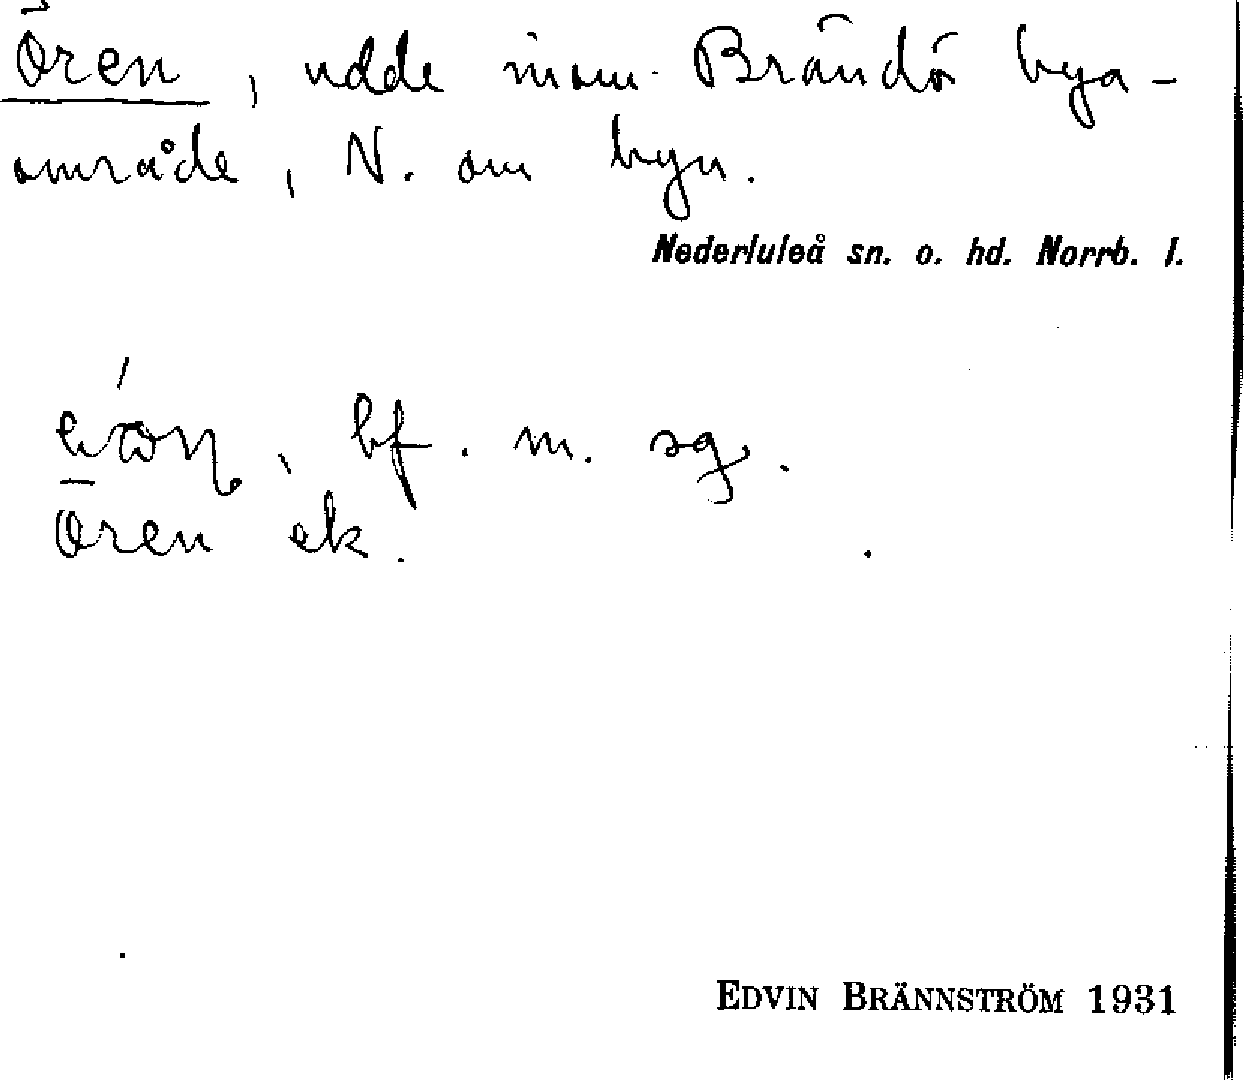 Ören, udde inom Brändö bya-
område, N. om byn.
Nederluleå sn. o. hd. Norrb. l.
bf. m. sg.
Ören ek.
EDVIN BRÄNNSTRÖM 1931